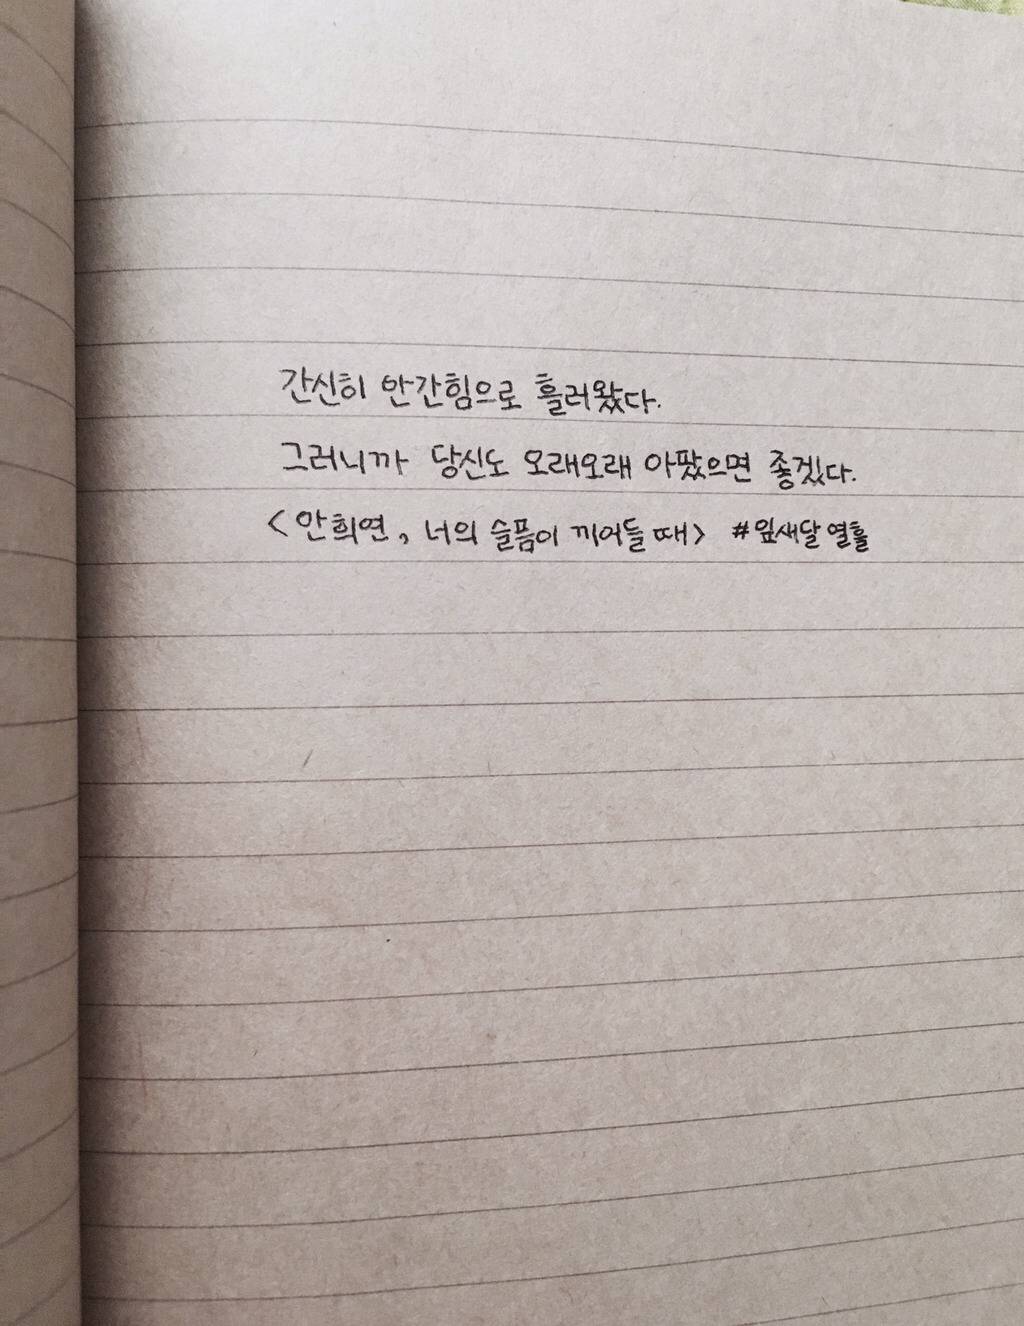 간신히 안간힘으로 흘러왔다.
그러니까 당신도 오래오래 아팠으면 좋겠다.
<안희연, 너의 슬픔이 끼어들 때> #잎새달열흘